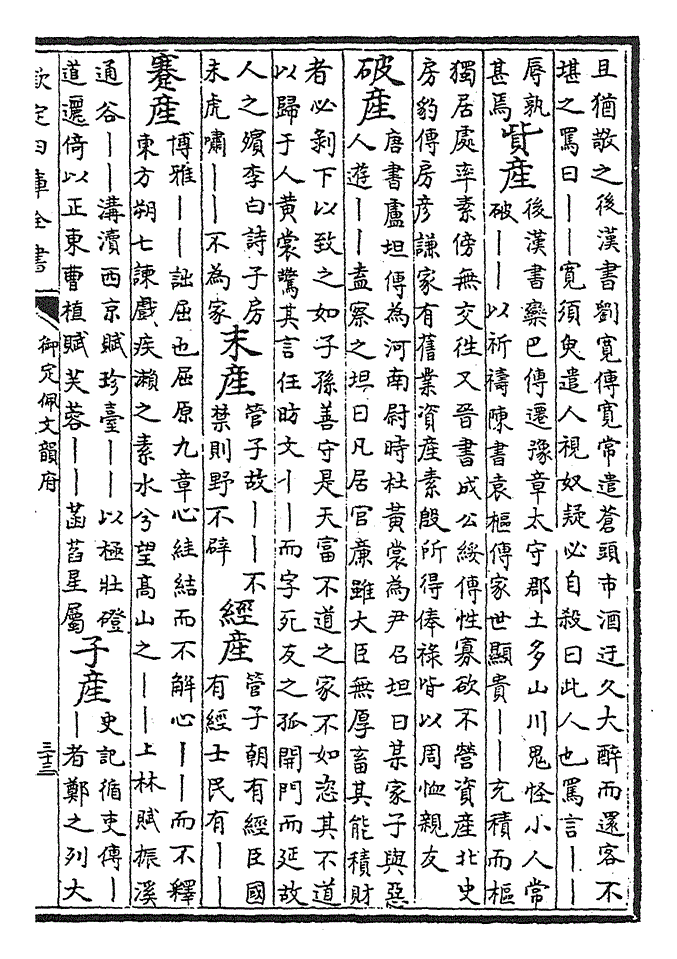 且猶敬之後漢書劉寛傳寛常遣蒼頭市酒迂久大醉而還客不
堪之罵曰丨丨寛須臾遣人視奴疑必自殺曰此人也罵言丨丨
辱孰
甚焉
貲産
後漢書欒巴傳遷豫章太守郡土多山川鬼怪小人常
破丨丨以祈禱陳書袁樞傳家世顯貴丨丨充積而樞
獨居處率素傍無交徃又晉書成公綏傳性寡欲不營資産北史
房豹傳房彦謙家有舊業資産素殷所得俸祿皆以周恤親友
破産
唐書盧坦傳為河南尉時杜黄裳為尹召坦曰某家子與惡
人遊丨丨盍察之坦曰凡居官亷雖大臣無厚畜其能積財
者必剥下以致之如子孫善守是天富不道之家不如恣其不道
以歸于人黄裳驚其言任昉文丨而字死友之孤開門而延故
人之殯李白詩子房
未虎嘯丨丨不為家
末産
管子故丨丨不
禁則野不辟
經産
管子朝有經臣國
有經士民有丨丨
蹇産
博雅丨丨詘屈也屈原九章心絓結而不解心丨丨而不釋
東方朔七諫戲疾瀬之素水兮望髙山之丨丨上林賦振溪
通谷丨丨溝瀆西京賦珍臺丨丨以極壯磴
道邐倚以正東曹植賦芙蓉丨丨菡萏星屬
子産
史記循吏傳丨
丨者鄭之列大
欽定四庫全書
御定佩文韻府
三十三